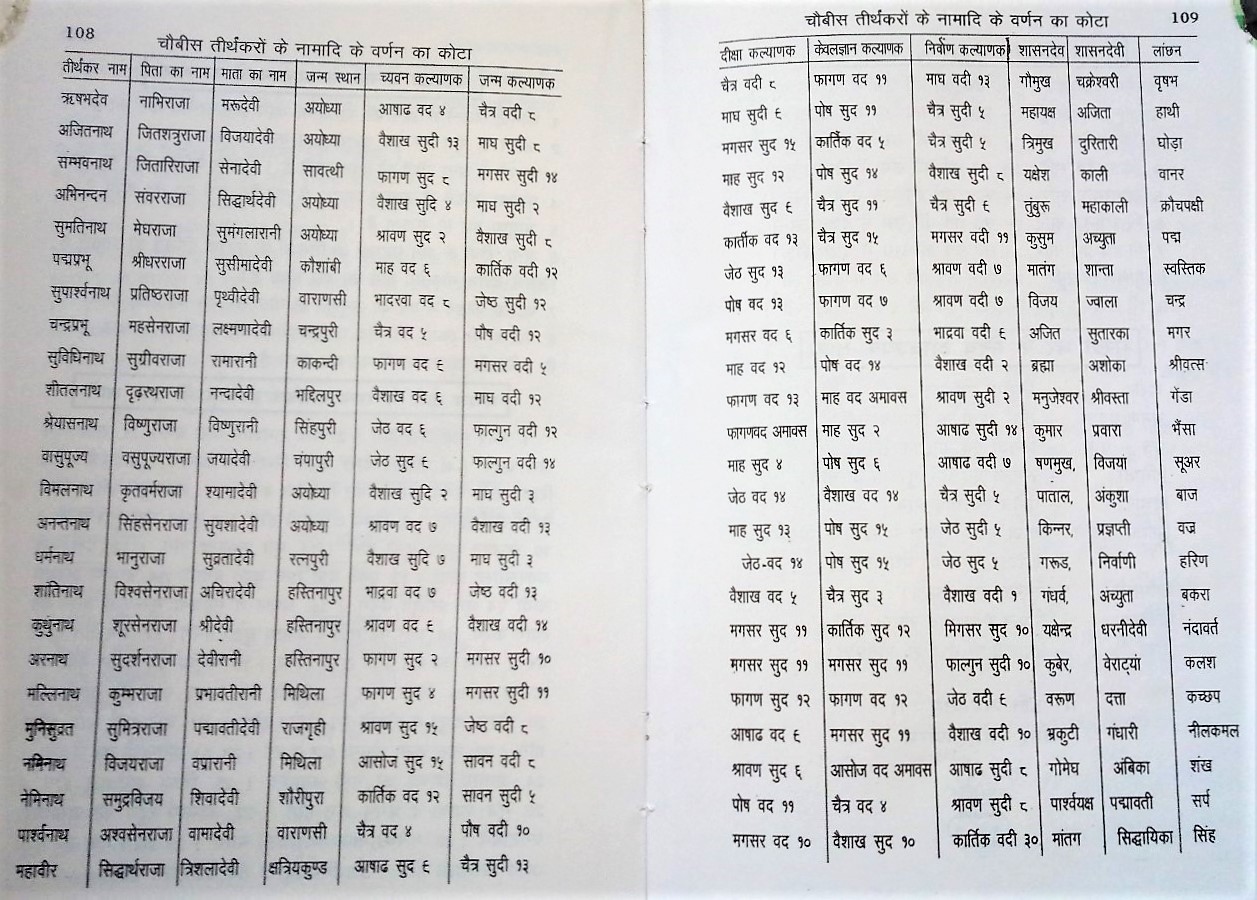 108
चौबीस तीर्थकरों के नामादि के वर्णन का कोटा
तीर्थकर नाम पिता का नाम माता का नाम जन्म स्थान च्यवन कल्याणक जन्म कल्याणक
ऋषभदेव नाभिराजा मरूदेवी अयोध्या आषाढ वद ४ चैत्र वदी ८
अजितनाथ जितशत्रुराजा विजयादेवी अयोध्या वैशाख सुदी १३ माघ सुदी ८
सम्भवनाथ जितारिराजा सेनादेवी सावत्थी फागण सुद ८ मगसर सुदी १४
अभिनन्दन संवरराजा सिद्धार्थदेवी अयोध्या वैशाख सुदि ४ माघ सुदी २
सुमतिनाथ मेघराजा सुमंगलारानी अयोध्या श्रावण सुद २ वैशाख सुदी ८
पद्मप्रभू श्रीधरराजा सुसीमादेवी कौशांबी माह वद ६ कार्तिक वदी १२
सुपार्श्वनाथ प्रतिष्ठराजा पृथ्वीदेवी वाराणसी भादरवा वद ८ जेष्ठ सुदी १२
चन्द्रप्रभू महसेनराजा लक्ष्मणादेवी चन्द्रपुरी चैत्र वद ५ पौष वदी १२
सुविधिनाथ सुग्रीवराजा रामारानी काकन्दी फागण वद ६ मगसर वदी ५
शीतलनाथ दृढ़रथराजा नन्दादेवी भद्दिलपुर वैशाख वद ६ माघ वदी १२
श्रेयासनाथ विष्णुराजा विष्णुरानी सिंहपुरी जेठ वद ६ फाल्गुन वदी १२
वासुपूज्य वसुपूज्यराजा जयादेवी चंपापुरी जेठ सुद ६ फाल्गुन वदी १४
विमलनाथ कृतवर्मराजा श्यामादेवी अयोध्या वैशाख सुदि २ माघ सुदी ३
अनन्तनाथ सिंहसेनराजा सुयशादेवी अयोध्या श्रावण वद ७ वैशाख वदी १३
धर्मनाथ भानुराजा सुव्रतादेवी रत्नपुरी वैशाख सुदि ७ माघ सुदी ३
शांतिनाथ विश्वसेनराजा अचिरादेवी हस्तिनापुर भाद्रवा वद ७ जेष्ठ वदी १३
कुथुंनाथ शूरसेनराजा श्रीदेवी हस्तिनापुर श्रावण वद ६ वैशाख वदी १४
अरनाथ सुदर्शनराजा देवीरानी हस्तिनापुर फागण सुद २ मगसर सुदी १०
मल्लिनाथ कुम्भराजा प्रभावतीरानी मिथिला फागण सुद ४ मगसर सुदी ११
मुनिसुव्रत सुमित्रराजा पद्मावतीदेवी राजगृही श्रावण सुद १५ जेष्ठ वदी ८
नमिनाथ विजयराजा वप्रारानी मिथिला आसोज सुद १५ सावन वदी ८
नेमिनाथ समुद्रविजय शिवादेवी शौरीपुरा कार्तिक वद १२ सावन सुदी ५
पार्श्वनाथ अश्वसेनराजा वामादेवी वाराणसी चैत्र वद ४ पौष वदी १०
महावीर सिद्धार्थराजा त्रिशलादेवी क्षत्रियकुण्ड आषाढ सुद ६ चैत्र सुदी १३
चौबीस तीर्थकरों के नामादि के वर्णन का कोटा 109
दीक्षा कल्याणक केवलज्ञान कल्याणक निर्वाण कल्याणक शासनदेव शासनदेवी लांछन
चैत्र वदी ८ फागण वद ११ माघ वदी १३ गौमुख चक्रेश्वरी वृषभ
माघ सुदी ६ पोष सुद ११ चैत्र सुदी ५ महायक्ष अजिता हाथी
मगसर सुद १५ कार्तिक वद ५ चैत्र सुदी ५ त्रिमुख दुरितारी घोड़ा
माह सुद १२ पोष सुद १४ वैशाख सुदी ८ यक्षेश काली वानर
वैशाख सुद ६ चैत्र सुद ११ चैत्र सुदी ६ तुंबुरू महाकाली क्रौचपक्षी
कार्तीक वद १३ चैत्र सुद १५ मगसर वदी ११ कुसुम अच्युता पद्म
जेठ सुद १३ फागण वद ६ श्रावण वदी ७ मातंग शान्ता स्वस्तिक
पोष वद १३ फागण वद ७ श्रावण वदी ७ विजय ज्वाला चन्द्र
मगसर वद ६ कार्तिक सुद ३ भाद्रवा वदी ६ अजित सुतारका मगर
माह वद १२ पोष वद १४ वैशाख वदी २ ब्रह्मा अशोका श्रीवत्स
फागण वद १३ माह वद अमावस श्रावण वदी २ मनुजेश्वर श्रीवस्ता गेंडा
फागणवद अमावस माह सुद २ आषाढ सुदी १४ कुमार प्रवारा भैंसा
माह सुद ४ पोष सुद ६ आषाढ वदी ७ षणमुख, विजया सूअर
जेठ वद १४ वैशाख वद १४ चैत्र सुदी ५ पाताल, अंकुशा बाज
माह सुद १३ पोष सुद १५ जेठ सुदी ५ किन्नर, प्रज्ञप्ती वज्र
जेठ-वद १४ पोष सुद १५ जेठ सुद ५ गरूड, निर्वाणी हरिण
वैशाख वद ५ चैत्र सुद ३ वैशाख वदी १ गंधर्व, अच्युता बकरा
मगसर सुद ११ कार्तिक सुद १२ मिगसर सुद १० यक्षेन्द्र धरनीदेवी नंदावर्त
मगसर सुद ११ मगसर सुद ११ फाल्गुन सुदी १० कुबेर, वेराट्यां कलश
फागण सुद १२ फागण वद १२ जेठ वदी ६ वरूण दत्ता कच्छप
आषाढ वद ६ मगसर सुद ११ वैशाख वदी १० भ्रकुटी गंधारी नीलकमल
श्रावण सुद ६ आसोज वद अमावस आषाढ सुदी ८ गोमेघ अंबिका शंख
पोष वद ११ चैत्र वद ४ श्रावण सुदी ८ पार्श्वयक्ष पद्मावती सर्प
मगसर वद १० वैशाख सुद १० कार्तिक वदी ३० मांतग सिद्धायिका सिंह